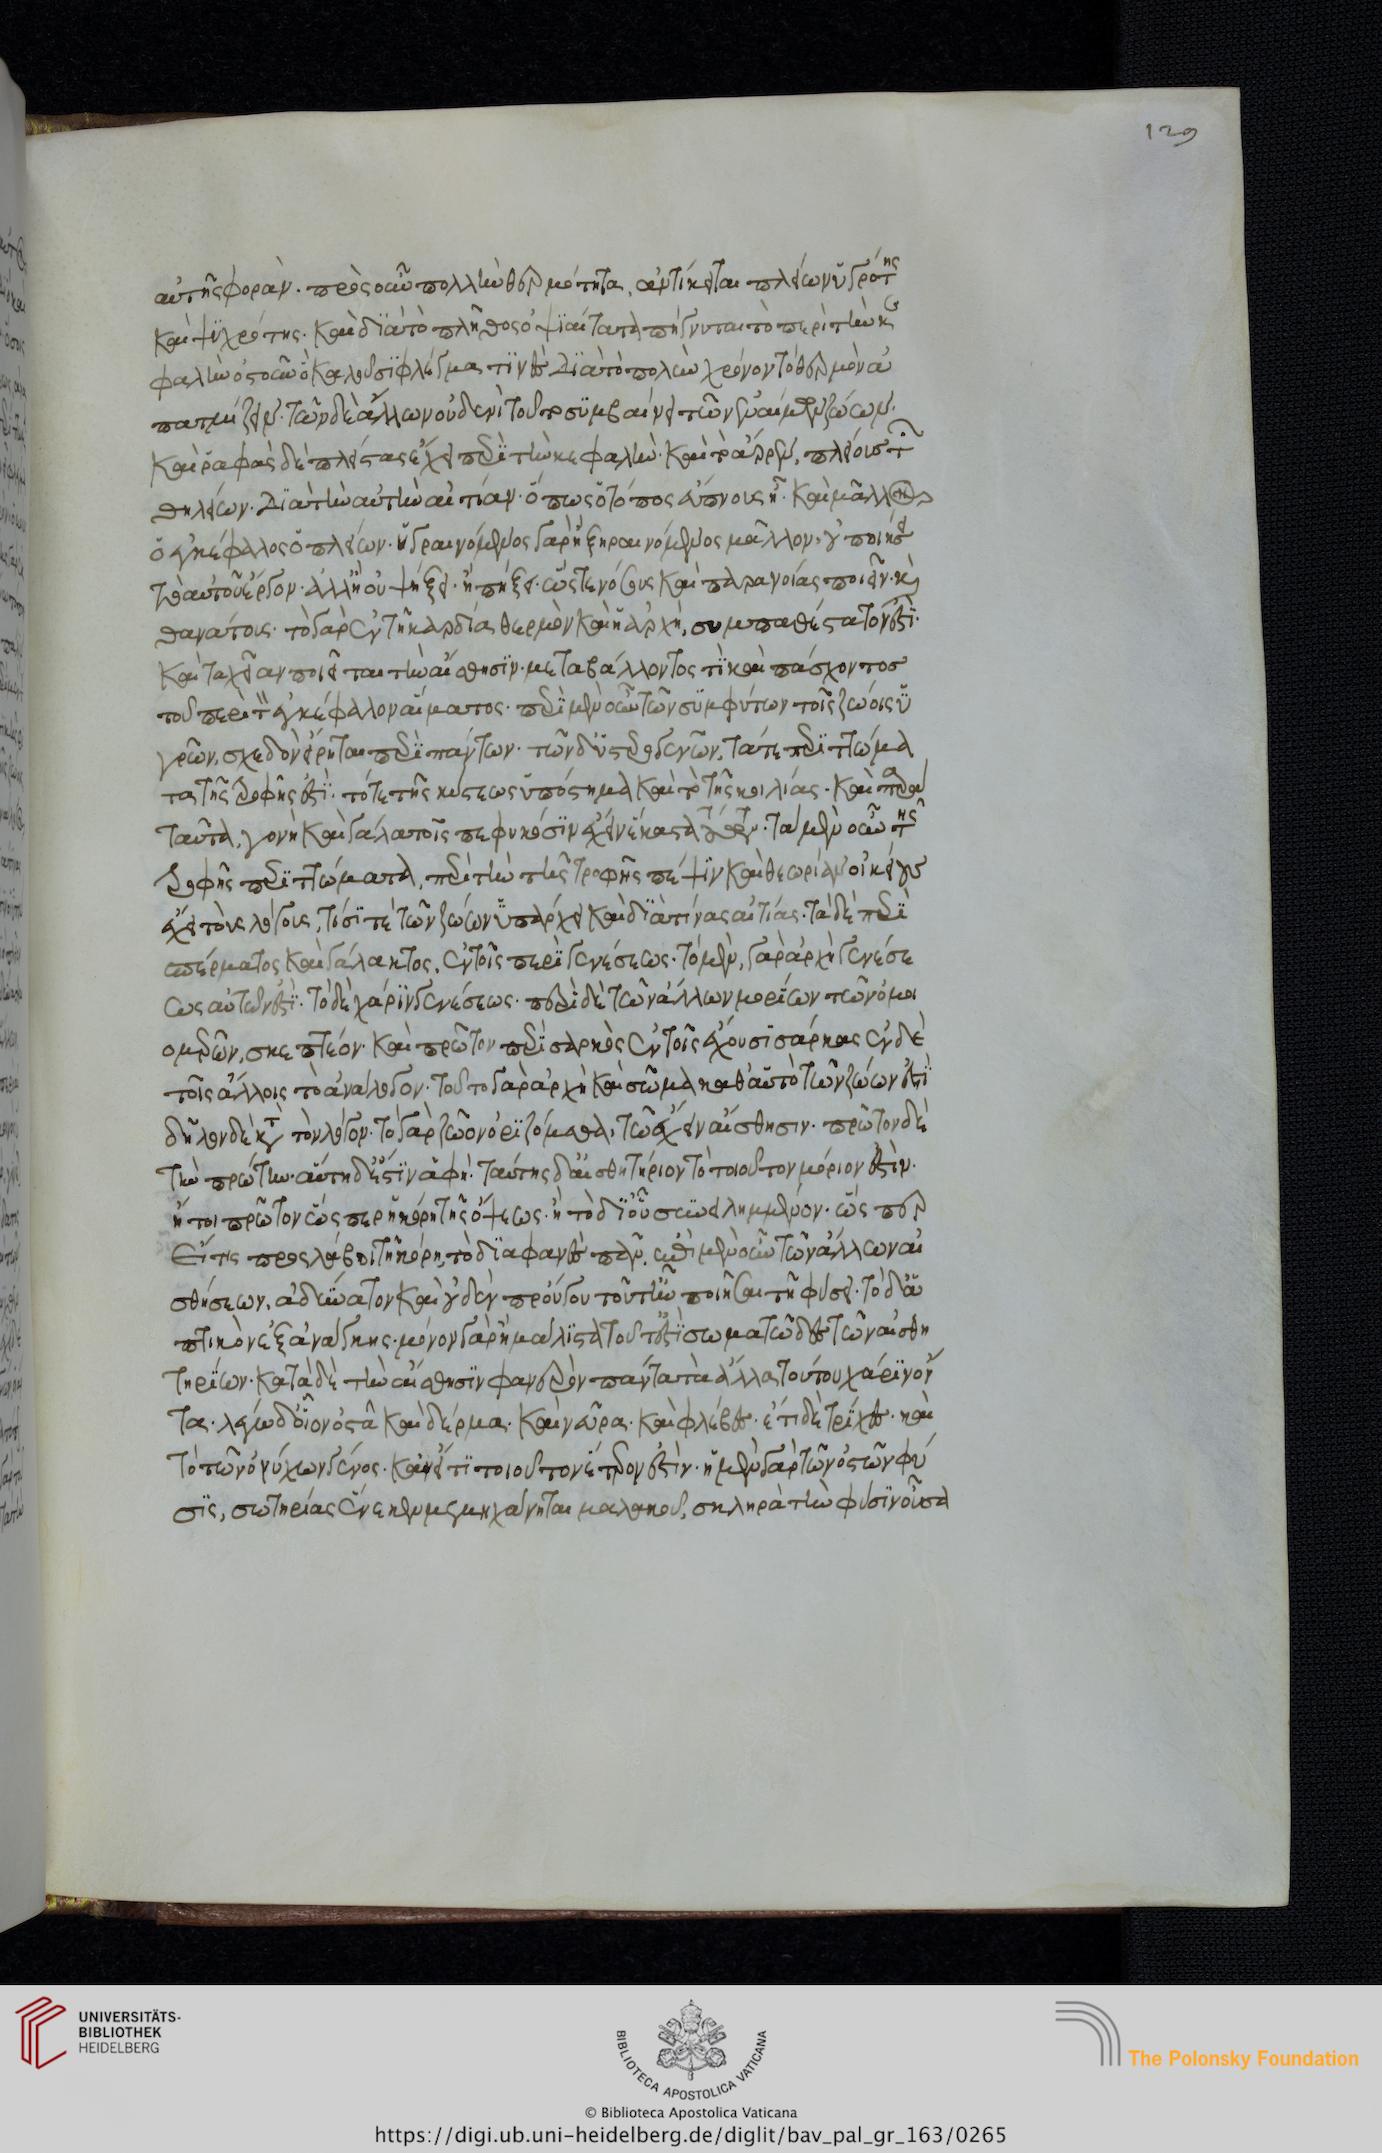 129
αὐτῆς φορὰν. πρὸς οὖν πολλὴν θερμότητα, ἀντίκειται πλείων ὑγρότης
καὶ ψυχρότης. καὶ διὰ τὸ πλῆθος ὀψιαίτατα πήγνυται τὸ περὶ τὴν κε
φαλὴν ὀστοῦν ὃ καλοῦσι βρέγμα τινὲς διὰ τὸ πολὺν χρόνον τὸ θερμὸν ἀ
πατμίζειν. τῶν δὲ ἄλλων οὐδενὶ τοῦτο συμβαίνει τῶν ἐναίμων ζώων.
καὶ ῥαφὰς δὲ πλείστας ἔχει περὶ τὴν κεφαλὴν. καὶ τὸ ἄρρεν, πλείους τῶν
θηλειῶν. διὰ τὴν αὐτὴν αἰτίαν. ὅπως ὁ τόπος εὔπνους ᾖ. καὶ μᾶλλον
ὁ ἐγκέφαλος ὁ πλείων. ὑγραινόμενος γὰρ ἢ ξηραινόμενος μᾶλλον, οὐ ποιήσει
τὸ αὐτοῦ ἔργον. ἀλλ' ἢ οὐ ψύξει. ἢ πήξει. ὥστε νόσους καὶ παρανοίας ποιεῖν. καὶ
θανάτους. τὸ γὰρ ἐν τῇ καρδίᾳ θερμὸν καὶ ἡ ἀρχὴ, συμπαθέστατόν ἐστι.
καὶ ταχεῖαν ποιεῖται τὴν αἴσθησιν. μεταβάλλοντός τι καὶ πάσχοντος
τοῦ περὶ τὸν ἐγκέφαλον αἵματος. περὶ μὲν οὖν τῶν συμφύτων τοῖς ζώοις ὑ
γρῶν, σχεδὸν εἴρηται περὶ πάντων. τῶν δ' ὑστερογενῶν, τά τε περιττώμα
τα τῆς τροφῆς ἐστι. τό τε τῆς κύστεως ὑπόστημα καὶ τὸ τῆς κοιλίας. καὶ παρὰ
ταῦτα, γονὴ καὶ γάλα τοῖς πεφυκόσιν ἔχειν ἕκαστα τούτων. τὰ μὲν οὖν τῆς
τροφῆς περιττώματα, περὶ τὴν τῆς τροφῆς πέψιν καὶ θεωρίαν οἰκείους
ἔχει τοὺς λόγους, τίσι τε τῶν ζώων ὑπάρχει καὶ διὰ τίνας αἰτίας. τὰ δὲ περὶ
σπέρματος καὶ γάλακτος, ἐν τοῖς περὶ γενέσεως. τὸ μὲν, γὰρ ἀρχὴ γενέσε
ως αὐτῶν ἐστι. τὸ δὲ χάριν γενέσεως. περὶ δὲ τῶν ἄλλων μορίων τῶν ὁμοι
ομερῶν, σκεπτέον. καὶ πρῶτον περὶ σαρκὸς ἐν τοῖς ἔχουσι σάρκας ἐν δὲ
τοῖς ἄλλοις τὸ ἀνάλογον. τοῦτο γὰρ ἀρχὴ καὶ σῶμα καθ' αὑτὸ τῶν ζώων ἐστὶ
δῆλον δὲ κατὰ τὸν λόγον. τὸ γὰρ ζῶον ὁριζόμεθα, τῷ ἔχειν αἴσθησιν. πρῶτον δὲ
τὴν πρώτην. αὕτη δ' ἐστὶν ἁφὴ. ταύτης δ' αἰσθητήριον τὸ τοιοῦτον μόριον ἐστὶν.
ἤτοι πρῶτον ὥσπερ ἡ κόρη τῆς ὄψεως. ἢ τὸ δι' οὗ συνειλημμένον. ὥσπερ
εἴ τις προσλάβοι τῇ κόρῃ, τὸ διαφανὲς πᾶν. ἐπὶ μὲν οὖν τῶν ἄλλων αἰ
σθήσεων, ἀδύνατον καὶ οὐδὲν πρὸ ἔργου τοῦτ' ἦν ποιῆσαι τῇ φύσει. τὸ δ' ἁ
πτικὸν ἐξ ἀνάγκης. μόνον γὰρ ἢ μάλιστα τοῦτ' ἐστὶ σωματῶδες τῶν αἰσθη
τηρίων. κατὰ δὲ τὴν αἴσθησιν φανερὸν πάντα τὰ ἄλλα τούτου χάριν ὄν
τα. λέγω δ' οἷον ὀστᾶ καὶ δέρμα. καὶ νεῦρα. καὶ φλέβες. ἔτι δὲ τρίχες. καὶ
τὸ τῶν ὀνύχων γένος. καὶ εἴ τι τοιοῦτον ἕτερον ἐστὶν. ἡ μὲν γὰρ τῶν ὀστῶν φύ
σις, σωτηρίας ἕνεκεν μεμηχάνηται μαλακοῦ, σκληρὰ τὴν φύσιν οὖσα
UNIVERSITÄTS-
BIBLIOTHEK
HEIDELBERG
BIBLIOTECA APOSTOLICA VATICANA
The Polonsky Foundation
© Biblioteca Apostolica Vaticana
https://digi.ub.uni-heidelberg.de/diglit/bav_pal_gr_163/0265